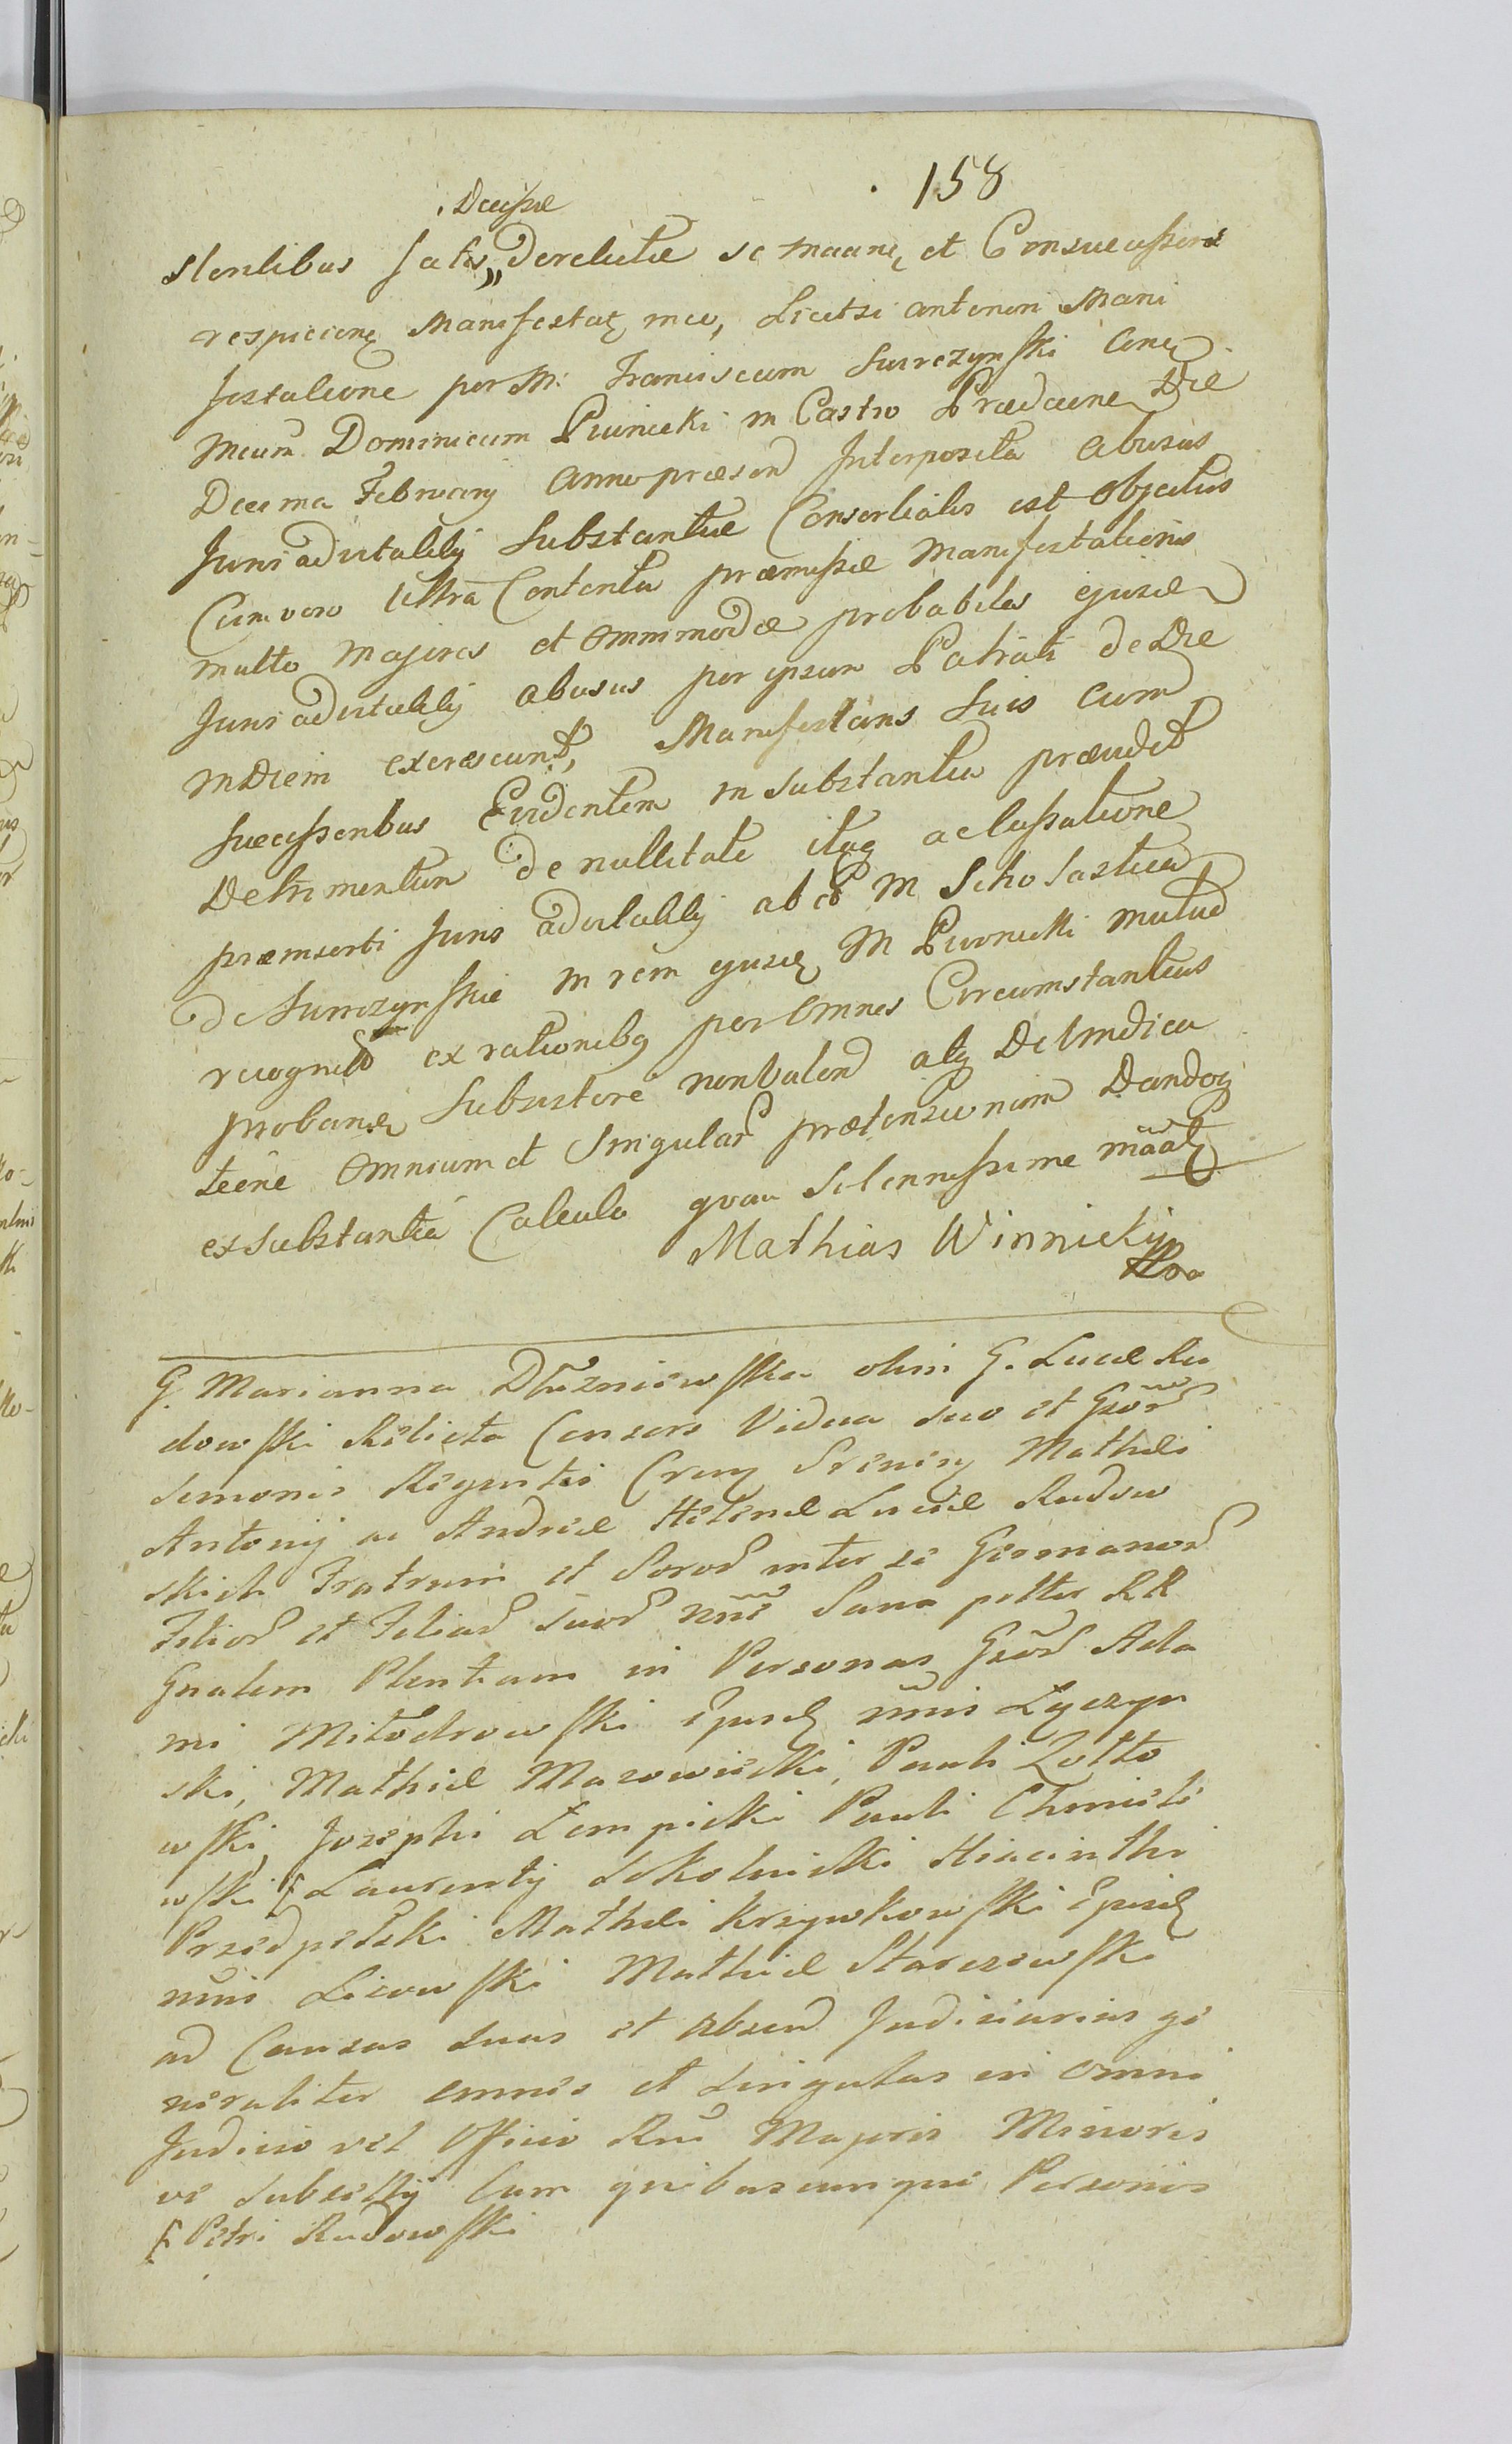 158
Decessæ
stentibus satis,, Derelictæ se maanẽ et Consuccessores
respicienẽ Manifestatẽ mea, Licetsi anteriori Mani
festatione per M: Franciscum Surczynski cone
Mcum Dominicum Piwnicki in Castro Prædecene Die
Decima February Anno præsen Interposita Abusus
Juris advitality Substantiæ Consortialis est Objectus
Cum vero Ultra Contenta præmissæ Manifestationis
multo Majores et Ommimodæ probabiles ejusde
Juris advitality abusus per ipsum Patrati de Die
in Diem excrescunt, Manifestans Suis cum
Successoribus Evidentem in Substantia prævidet
Detrimentum de nullitate itaq acCassatione
præinserti Juris advitality ab M Scholastica
de Surczynskie in rem ejusde M Piwnicki mutuo
recognit ex rationibq per Omnes Circumstantias
probanẽ Subsistere non Valen atq De Vindica
tione Omnium et Singular prætensionum Dandoq
ex Substantia Calculo qvam Solennissime mãatẽ
Mathias Winnicki

G. Marianna Dłużniewska olim G. Lucæ Ru
dowski Relicta Consors Vidua suo et Gsõr
Simonis Regentis Creus Srensis Mathei
Antonij ac Andreæ Helenæ Luciæ Rudow
skich Fratrum et Soror inter se Germanor
Filior et Filiar suor nõie Sana peltis RR
Gnalem Plentiam in Personas Gsõr Ada
mi Miłodrowski Ejusd nõnis Łyczyn
ski, Mathiæ Mazowiecki, Pauli Żołto
wski, Josephi Łempicki Pauli Chmiele
wski Laurenty Sokolnicki Hiacinthi
Przedpełski Mathei Krzywkowski Ejusd
nõnis Lisowski Mathiæ Starczewski
ad Causas suas et absen Judiciarias ge
neraliter omnes et singulas in omni
Judicio vel Officio Rni Majoris Minoris
ve subsellij cum quibuscunque Personis
Petri Rudowski